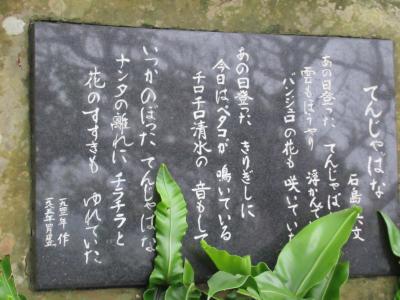 てんじゃばな
石島 文
あの日登った てんじゃば
雲もほうやり 浮かんで
バンジュロの花も 咲いてい
あの日登った きりぎしに
今日はペタコが 鳴いている
チロチロ清水の 音もして
いつかのぼった てんじゃばな
ナンタの離れに チラチラと
花のすすきも ゆれていた
作